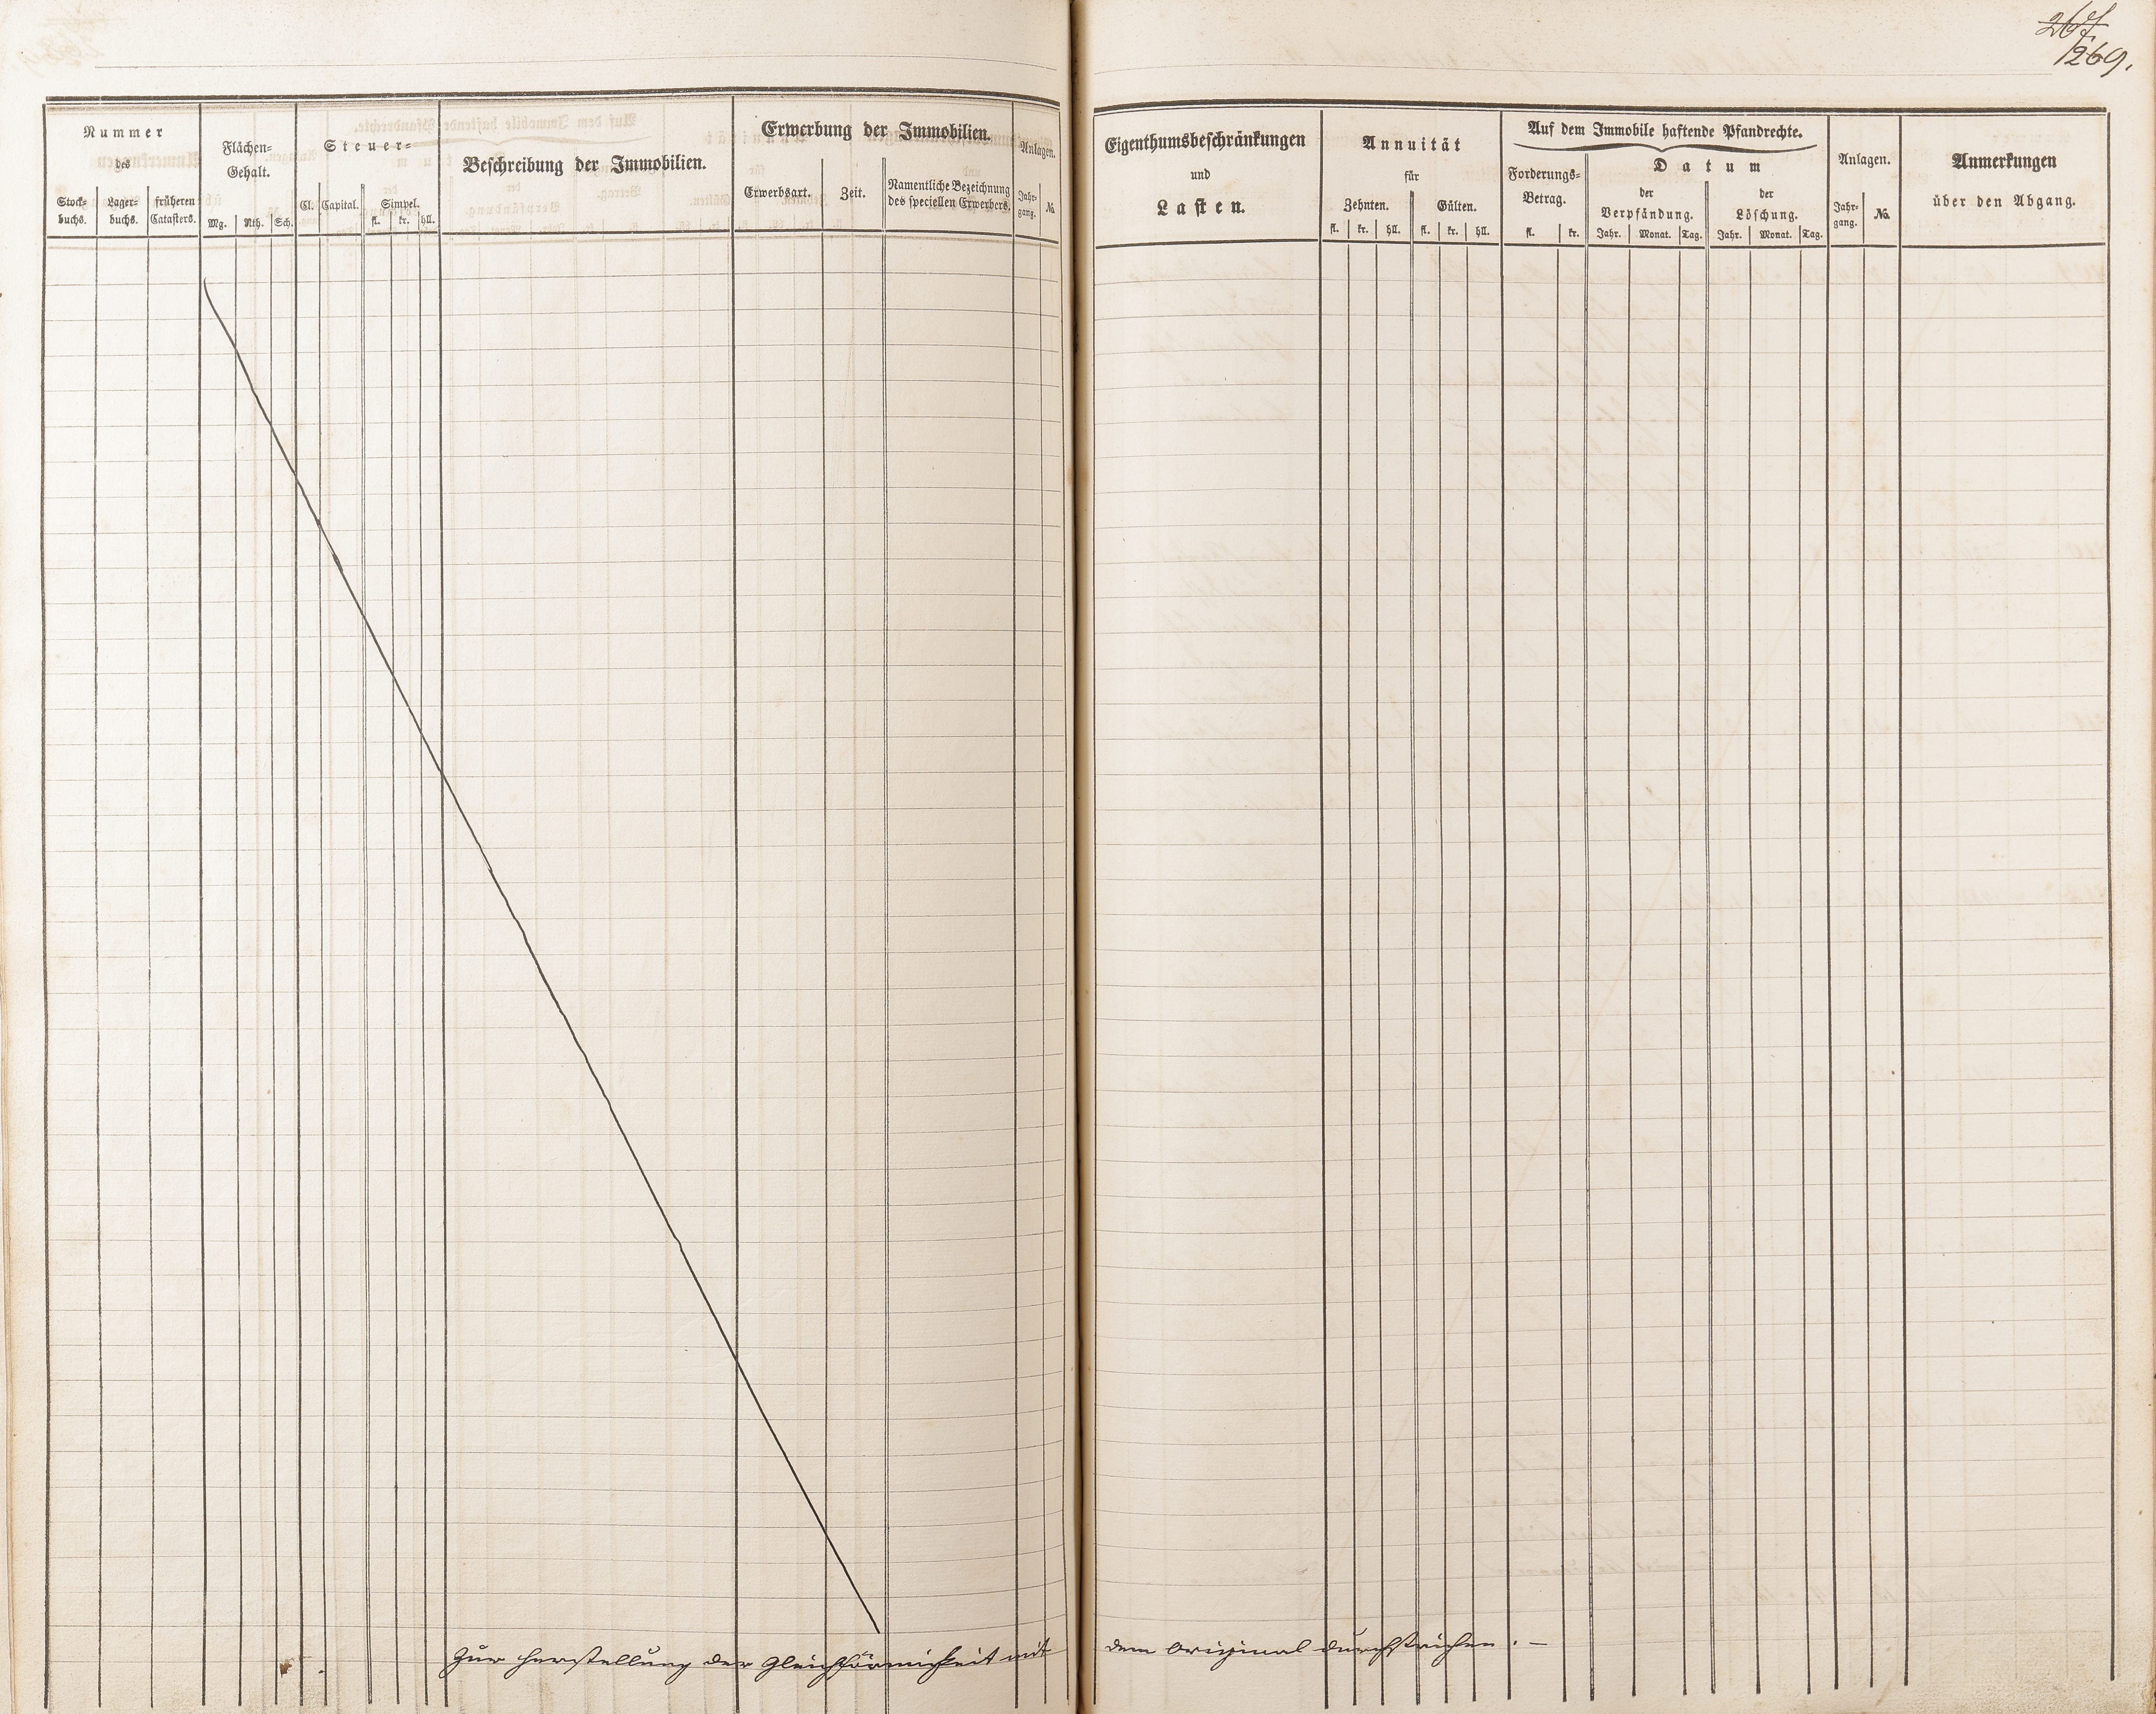 267.
269.
Nummer
des
Stock-
buchs.
Lager-
buchs.
früheren
Catasters.
Flächen-
Gehalt.
Mg. Rth. Sch.
Steuer-
Cl. Capital. Simpel.
fl. kr. hll.
Beschreibung der Immobilien.
Erwerbung der Immobilien.
Erwerbsart. Zeit.
Namentliche Bezeichnung
des speciellen Erwerbers.
Anlagen.
Jahr-
gang.
No.
Eigenthumsbeschränkungen
und
Lasten.
Annuität
für
Zehnten. Gülten.
fl. kr. hll. fl. kr. hll.
Auf dem Immobile haftende Pfandrechte.
Forderungs-
Betrag.
fl. kr.
Datum
der
Verpfändung.
Jahr. Monat. Tag.
der
Löschung.
Jahr. Monat. Tag.
Anlagen.
Jahr-
gang.
No.
Anmerkungen
über den Abgang.
Zur Herstellung der Gleichförmigkeit mit dem Original durchstrichen. –